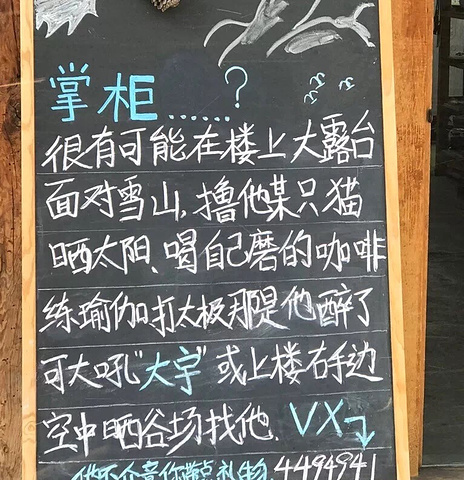 掌柜......?
很有可能在楼上大露台
面对雪山,撸他某只猫
晒太阳、喝自己磨的咖啡
练瑜伽打太极那是他醉了
可大吼"大宇"或上楼右手边
空中晒谷场找他. VX
他不介意你带点礼物. 4494941